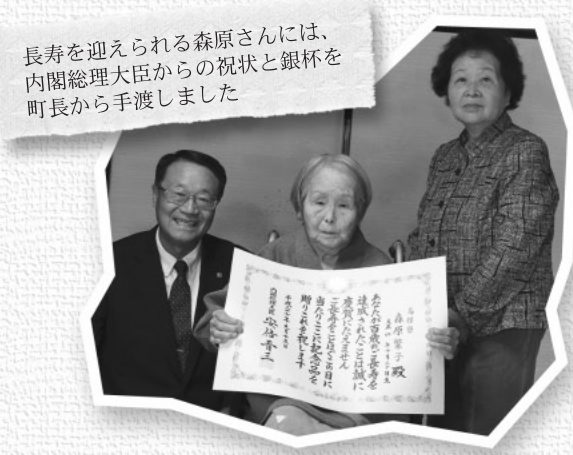 長寿を迎えられる森原さんには、
内閣総理大臣からの祝状と銀杯を
町長から手渡しました
森原繁子 殿
あなたが百歳のご長寿を
達成されたことは誠に
慶賀にたえません
ご長寿をことほぐこの日に
当たりここに記念品を
贈りこれを祝します
内閣総理大臣 安倍晋三